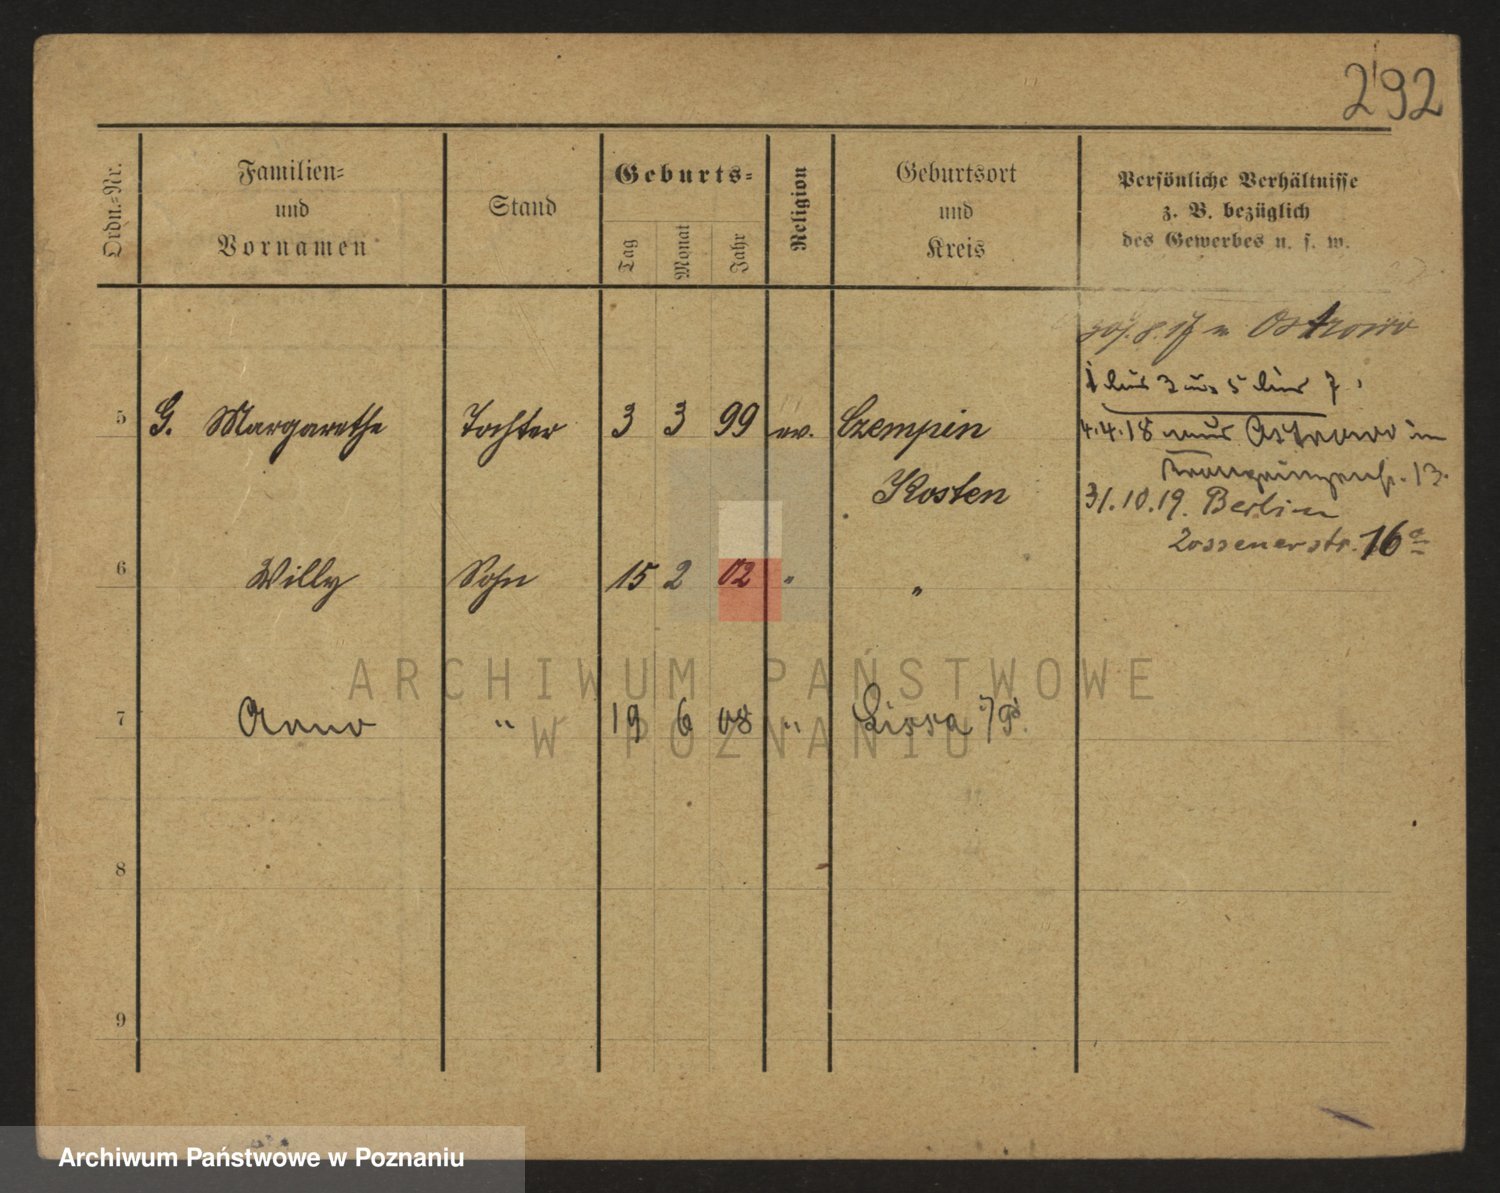 292
Ordn.-Nr.
Familien-
und
Vornamen
Stand
Geburts-
Tag
Monat
Jahr
Religion
Geburtsort
und
Kreis
Persönliche Verhältnisse
z. B. bezüglich
des Gewerbes u. s. w.
Ostrowo
5 G. Margarethe Tochter 3 3 99 ev. Czempin
Kosten
4.4.18 aus Ostrowo
13.
31.10.19. Berlin
Zossenerstr. 16a
6 Willy Sohn 15 2 02 " "
7 " 19 6 08 " Lissa i/P.
8
9
ARCHIWUM PAŃSTWOWE
W POZNANIU
Archiwum Państwowe w Poznaniu